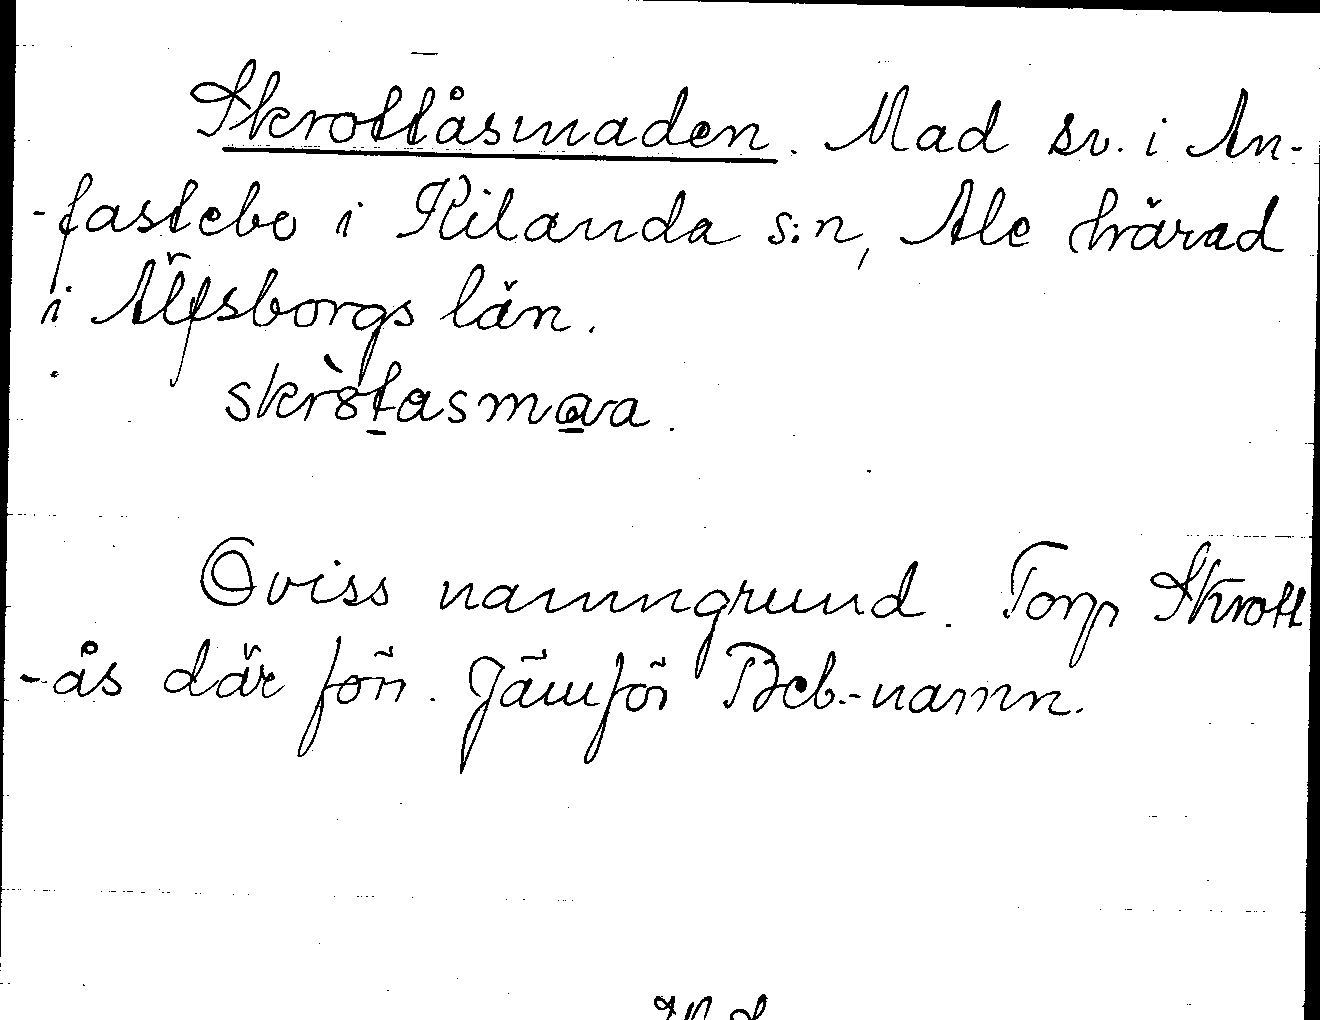 Skrottåsmaden. Mad sv. i An-
-fastebo i Kilanda s:n, Ale härad
i Älfsborgs län.
skròtasmava.
Oviss namngrund. Torp Skrott
-ås där förr. Jämför Beb.-namn.